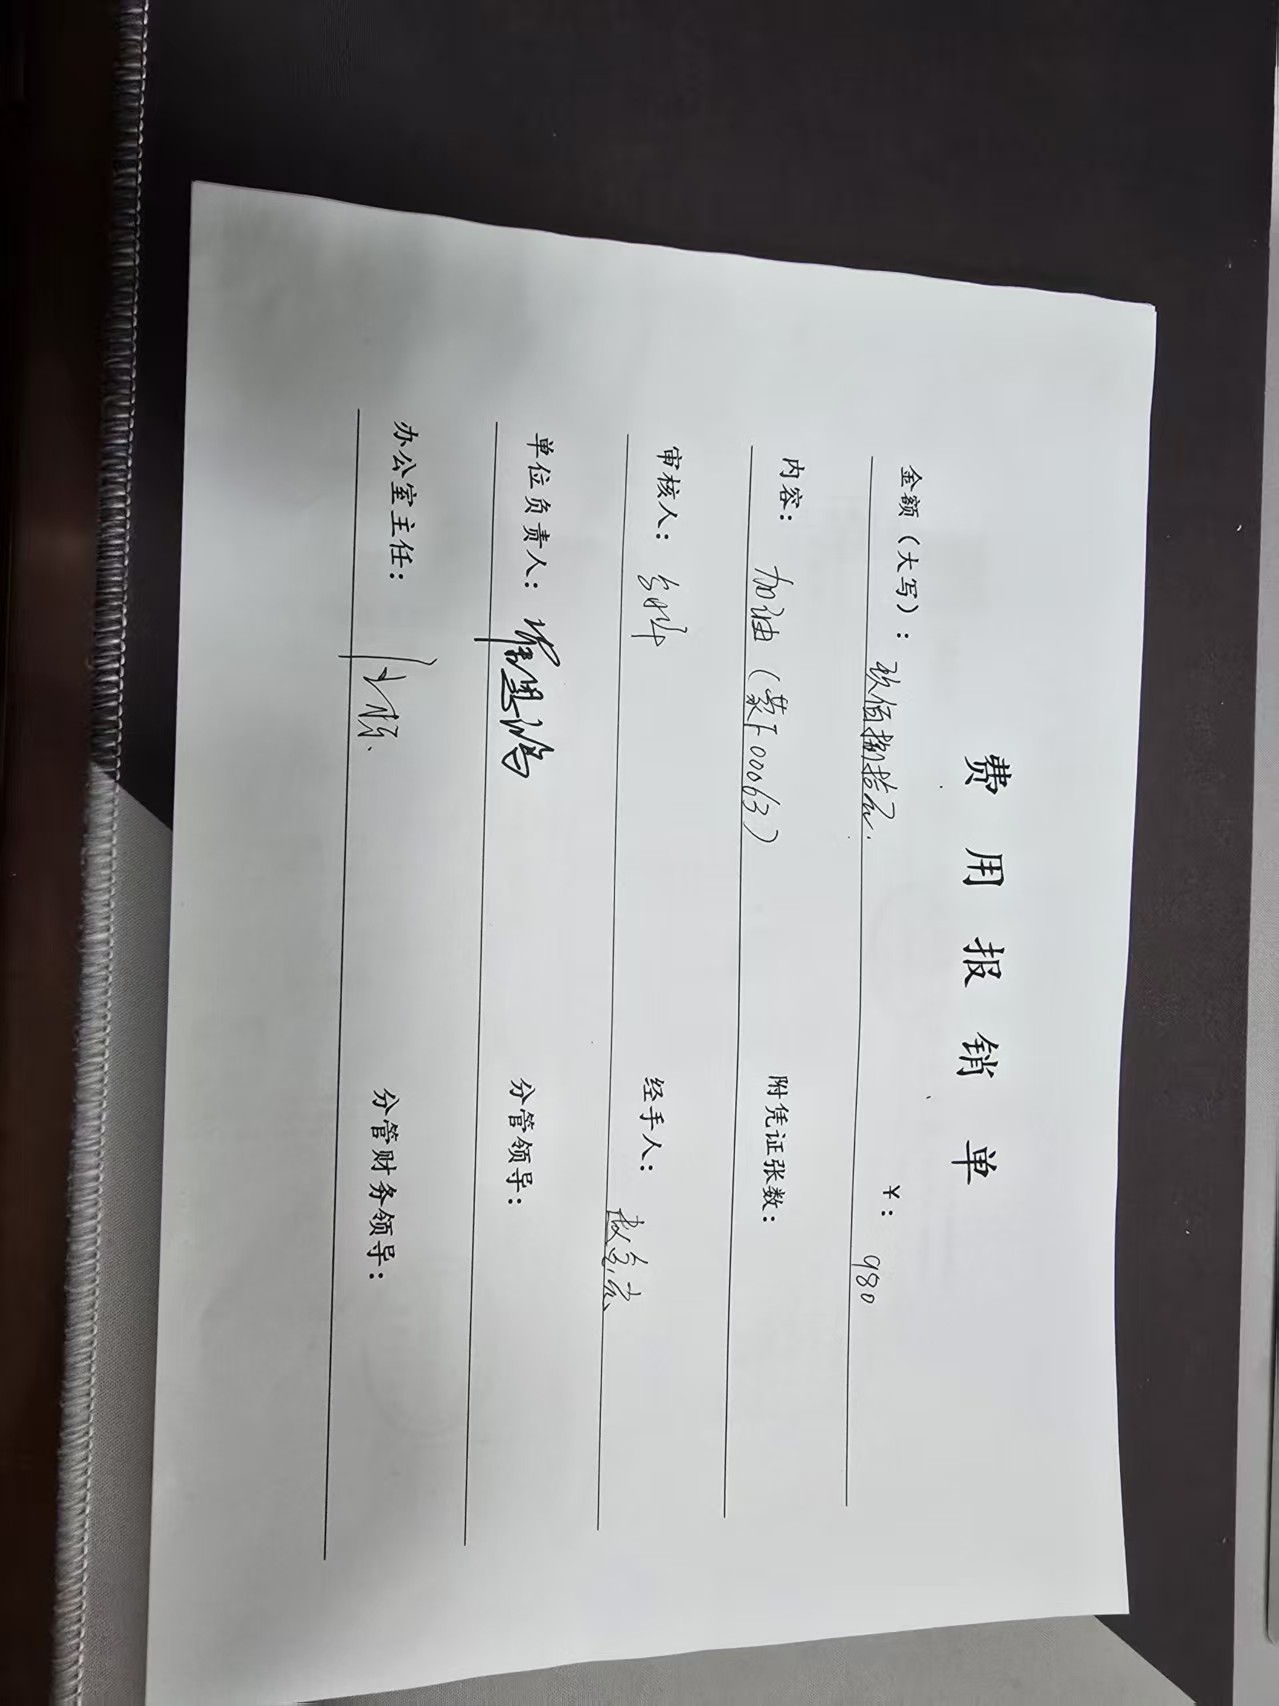 费用报销单
金额（大写）：玖佰捌拾元. ￥：980
内容：加油（蒙F00063） 附凭证张数：
审核人： 经手人：
单位负责人： 分管领导：
办公室主任： 分管财务领导：